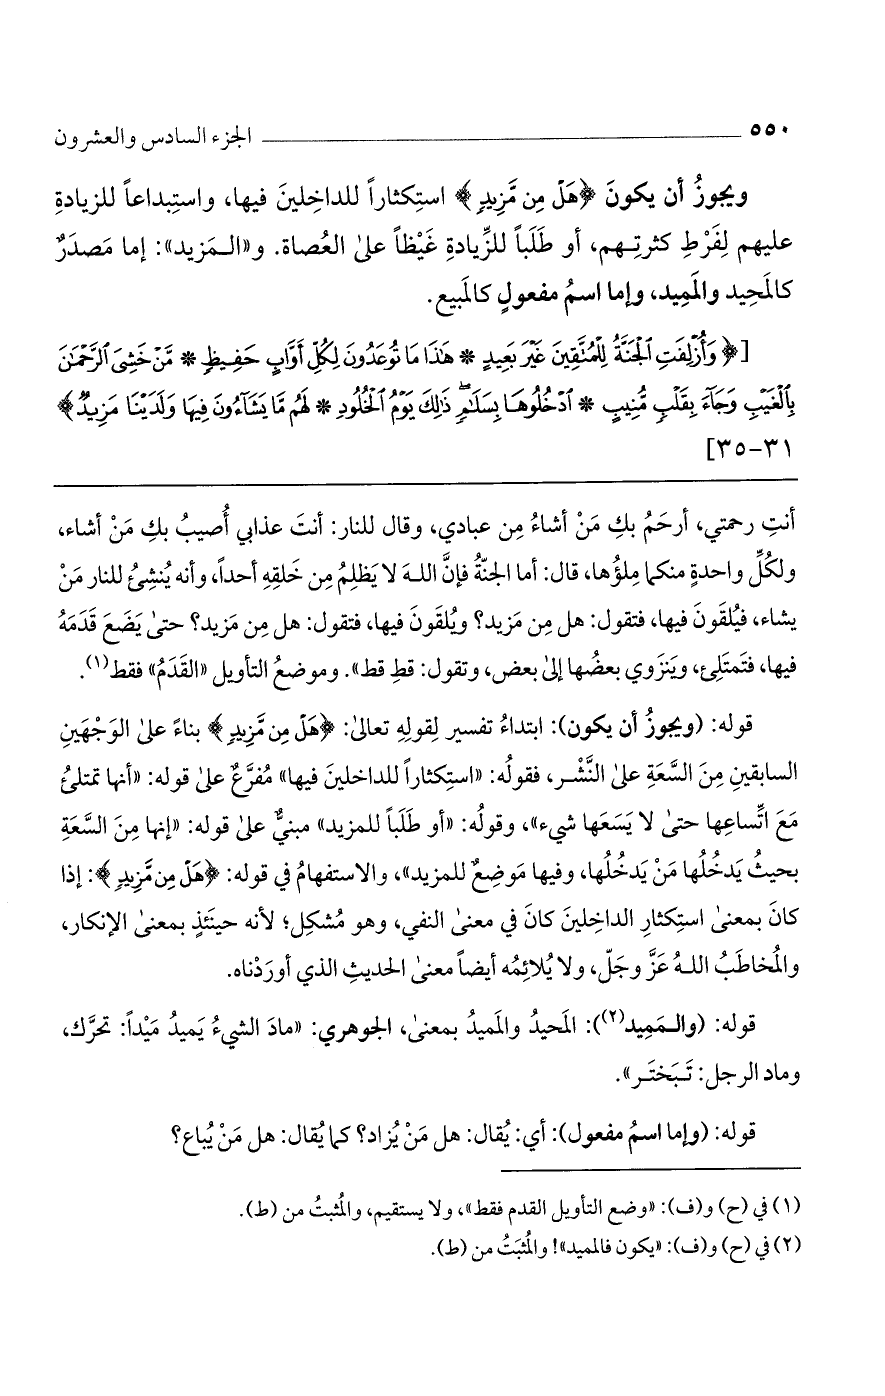 ٥٥٠ ـــــ الجزء السادس والعشرون
ويجوزُ أن يكونَ ﴿هَلْ مِن مَّزِيدٍ﴾ استِكثاراً للداخِلينَ فيها، واستِبداعاً للزيادةِ
عليهم لِفَرْطِ كثرتِـهم، أو طَلَباً للزِّيادةِ غَيْظاً علىٰ العُصاة. و«الـمَزيد»: إما مَصدَرٌ
كالمَحِيد والمَمِيد، وإما اسمُ مفعولٍ كالمَبيع.
[﴿وَأُزْلِفَتِ ٱلْجَنَّةُ لِلْمُتَّقِينَ غَيْرَ بَعِيدٍ * هَٰذَا مَا تُوعَدُونَ لِكُلِّ أَوَّابٍ حَفِيظٍ * مَّنْ خَشِىَ ٱلرَّحْمَٰنَ
بِٱلْغَيْبِ وَجَآءَ بِقَلْبٍ مُّنِيبٍ * ٱدْخُلُوهَا بِسَلَٰمٍ ۖ ذَٰلِكَ يَوْمُ ٱلْخُلُودِ * لَهُم مَّا يَشَآءُونَ فِيهَا وَلَدَيْنَا مَزِيدٌ﴾
٣١-٣٥]
أنتِ رحمتي، أرحَمُ بكِ مَنْ أشاءُ مِن عبادي، وقال للنار: أنتَ عذابي أُصيبُ بكِ مَنْ أشاء،
ولكُلِّ واحدةٍ منكما مِلؤُها، قال: أما الجنّةُ فإنَّ اللهَ لا يَظلِمُ مِن خَلقِهِ أحداً، وأنه يُنشِئُ للنار مَنْ
يشاء، فيُلقَونَ فيها، فتقول: هل مِن مَزيد؟ ويُلقَونَ فيها، فتقول: هل مِن مَزيد؟ حتىٰ يَضَعَ قَدَمَهُ
فيها، فتَمتَلِئ، ويَنزَوي بعضُها إلىٰ بعض، وتقول: قطِ قط». وموضعُ التأويل «القَدَمُ» فقط(١).
قوله: (ويجوزُ أن يكون): ابتداءُ تفسير لِقولِهِ تعالىٰ: ﴿هَلْ مِن مَّزِيدٍ﴾ بناءً علىٰ الوَجْهَينِ
السابقينِ مِنَ السَّعَةِ علىٰ النَّشْـر، فقولُه: «استِكثاراً للداخلينَ فيها» مُفرَّعٌ علىٰ قوله: «أنها تمتلئُ
مَعَ اتِّساعِها حتىٰ لا يَسَعَها شيء»، وقولُه: «أو طَلَباً للمزيد» مبنيٌّ علىٰ قوله: «إنها مِنَ السَّعَةِ
بحيثُ يَدخُلُها مَنْ يَدخُلُها، وفيها مَوضِعٌ للمزيد»، والاستفهامُ في قوله: ﴿هَلْ مِن مَّزِيدٍ﴾: إذا
كانَ بمعنىٰ استِكثارِ الداخِلينَ كانَ في معنىٰ النفي، وهو مُشكِل؛ لأنه حينَئذٍ بمعنىٰ الإنكار،
والمُخاطَبُ اللهُ عَزَّ وجَلّ، ولا يُلائِمُه أيضاً معنىٰ الحديثِ الذي أورَدْناه.
قوله: (والـمَمِيد(٢)): المَحيدُ والمَميدُ بمعنىٰ، الجوهري: «مادَ الشيءُ يَميدُ مَيْداً: تحرَّك،
وماد الرجل: تَـبَختَـر».
قوله: (وإما اسمُ مفعول): أي: يُقال: هل مَنْ يُزاد؟ كما يُقال: هل مَنْ يُباع؟
(١) في (ح) و(ف): «وضع التأويل القدم فقط»، ولا يستقيم، والمُثبتُ من (ط).
(٢) في (ح) و(ف): «يكون فالمميد»! والمُثبَتُ من (ط).